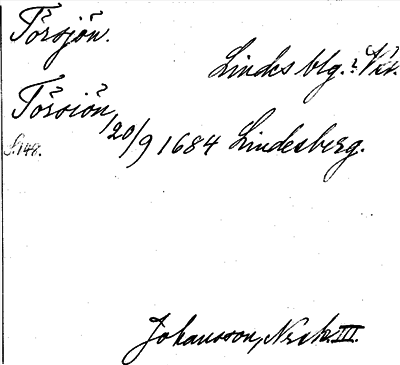 Torsjön.
Lindes blg.
Torsiön,
20/9 1684 Lindesberg.
S. 148.
Johansson, Nrsk. III.